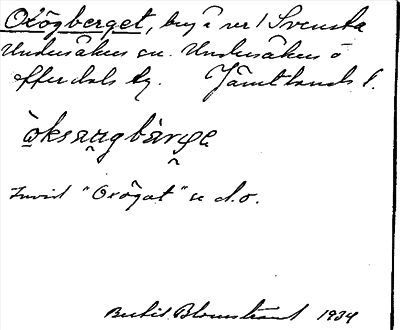 Oxögberget, berg i ver / Svenska
Undersåkers sn. Undersåkers o
Offerdals tg. Jämtlands l.
òksaugbàrge
Invid "Oxögat" se d.o.
Bertil Blomstrand 1934